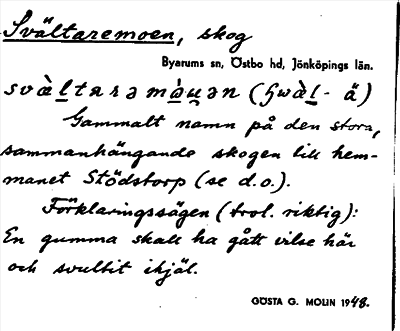 Svältaremoen, skog
Byarums sn, Östbo hd, Jönköpings län.
svàl̲tarəmà̲u̯ən (ɧwàl̲- ä)
Gammalt namn på den stora,
sammanhängande skogen till hem-
manet Stödstorp (se d.o.).
Förklaringssägen (trol. riktig):
En gumma skall ha gått vilse här
och svultit ihjäl.
GÖSTA G. MOLIN 1948.